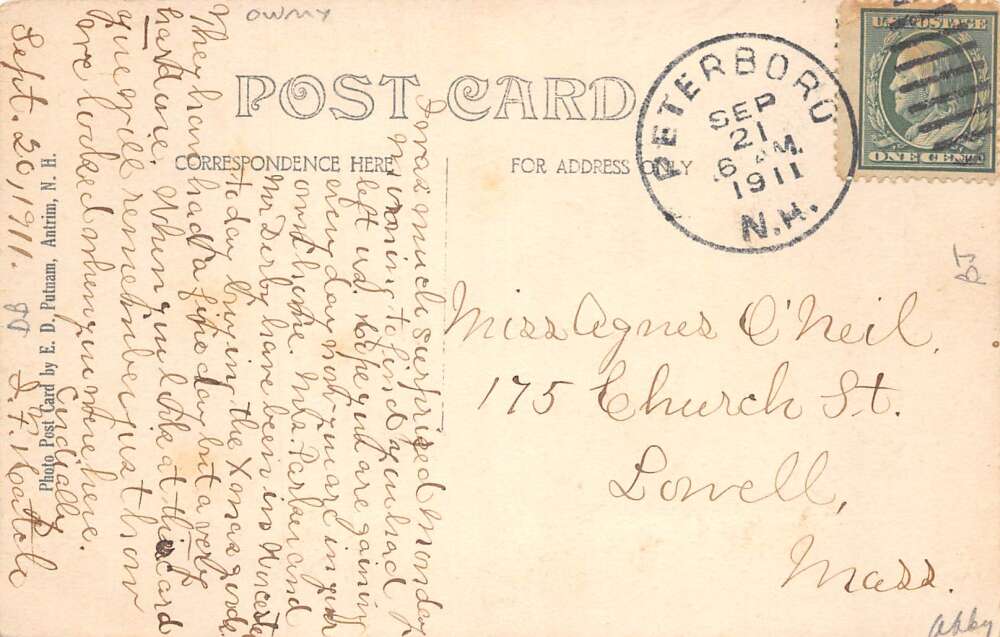 OWMY
POST CARD
CORRESPONDENCE HERE
FOR ADDRESS ONLY
PETERBORO
SEP
21
6 AM
1911
N.H.
U.S. POSTAGE
ONE CENT
I was much surprised Monday
morning to find you had
left us. Hope you are gaining
every day now you are in your
own home. Mrs. and
Mr Derby have been in Worcester
to day buying the Xmas goods.
They have had a fine day but a very
hard one. When you look at this card
you will remember just how
we looked when you were here.
Cordially
Sept. 20, 1911.
Photo Post Card by E. D. Putnam, Antrim, N. H.
DB
Miss Agnes O'Neil,
175 Church St.
Lowell,
Mass.